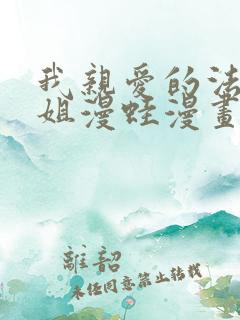 我親愛的法
姐漫蛙漫畫
離韶
未經同意禁止轉載